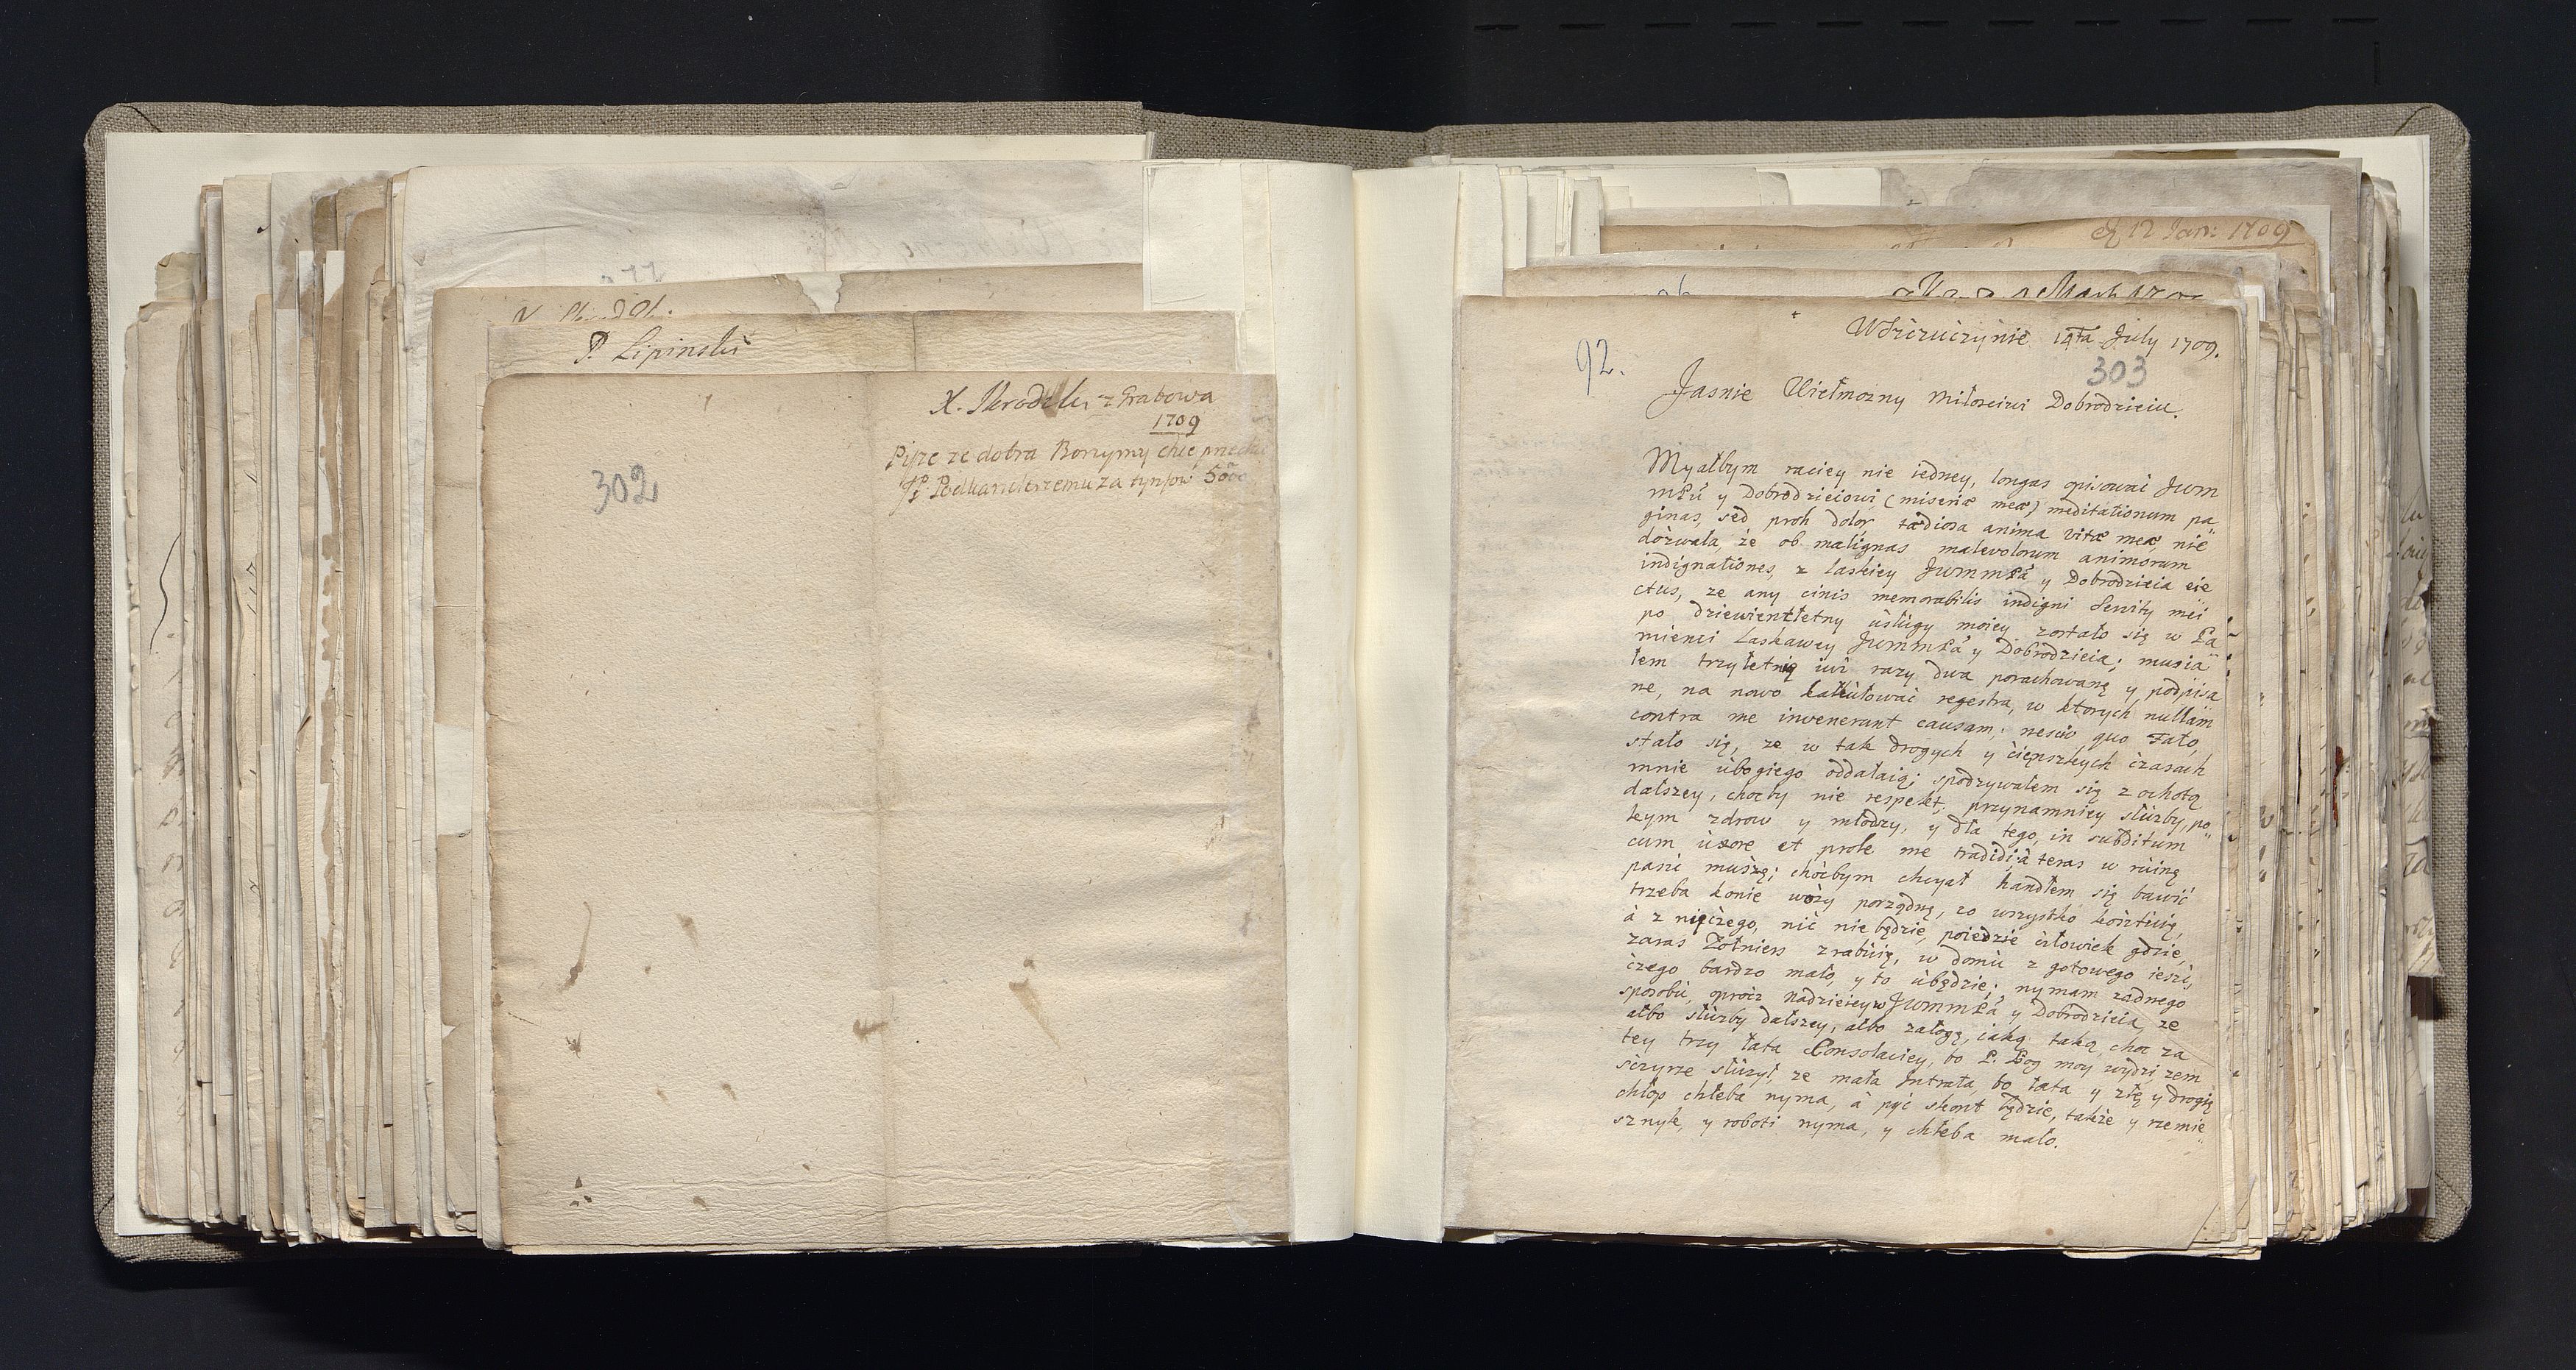 P. Lipinski
X. Skrodzki z Grabowa
1709
Pisze ze dobra Bonzymy chce
JP. Podkanclerzemu za tynfow 5000
302
12 Jan: 1709
WSzczuczynie 14ta July 1709.
92.
303
Jasnie Wielmozny Miłosciwi Dobrodzieiu.
Myałbym raciey nie iedney, longas opisowac Jwm
mPu y Dobrodzieiowi, (miseriæ meæ) meditationum pa„
ginas, sed proh dolor tædiosa anima vitæ meæ, nie
dozwala, że ob malignas malevolorum animorum
indignationes, z łaskiey JwmmPa y Dobrodzieia eie„
ctus, ze any cinis memorabilis indigni Servity mei
po dziewiencletny usługy moiey zostało się w Pa„
mienci Łaskawey JwmmPa y Dobrodzieia; musia„
łem trzyletnię iuż razy dwa porachowanę y podpisa„
ne, na nowo kalkulować regestra, w ktorych nullam
contra me invenerunt causam; nescio quo Fato,
stało się, ze w tak drogych y ciępszkych czasach
mnie ubogiego oddalaią; spodzywałem się z ochotą
dalszey, choćby nie respekt, przynamniey służby, po„
kym zdrow y młodzy, y dla tego, in subditum
cum uxore et prole me tradidi; à teras w ruinę
pasić muszę; choćbym chcyał handlem się bawić
trzeba konie wozy porządnę, co wszystko kosztuię,
à z nięczego, nić nie będzie, poiedzie człowiek gdzie,
zaras Żołniers zrabuię, w domu z gotowego ieszć,
czego bardzo mało, y to ubędzie; nymam zadnego
sposobu, oprócz nadzieiey w JwmmPa y Dobrodzieia, ze
albo służby dalszey, albo załogę, iaką taką, choc za
tey trzy lata Consolaciey, bo P. Bog moy wydzi, zem
sczyrze służył, ze mała Intrata, bo lata y złę y drogię
chłop chleba nyma, à pyć skont będzie, także y rzemie„
sznyk, y roboti nyma, y chleba mało.